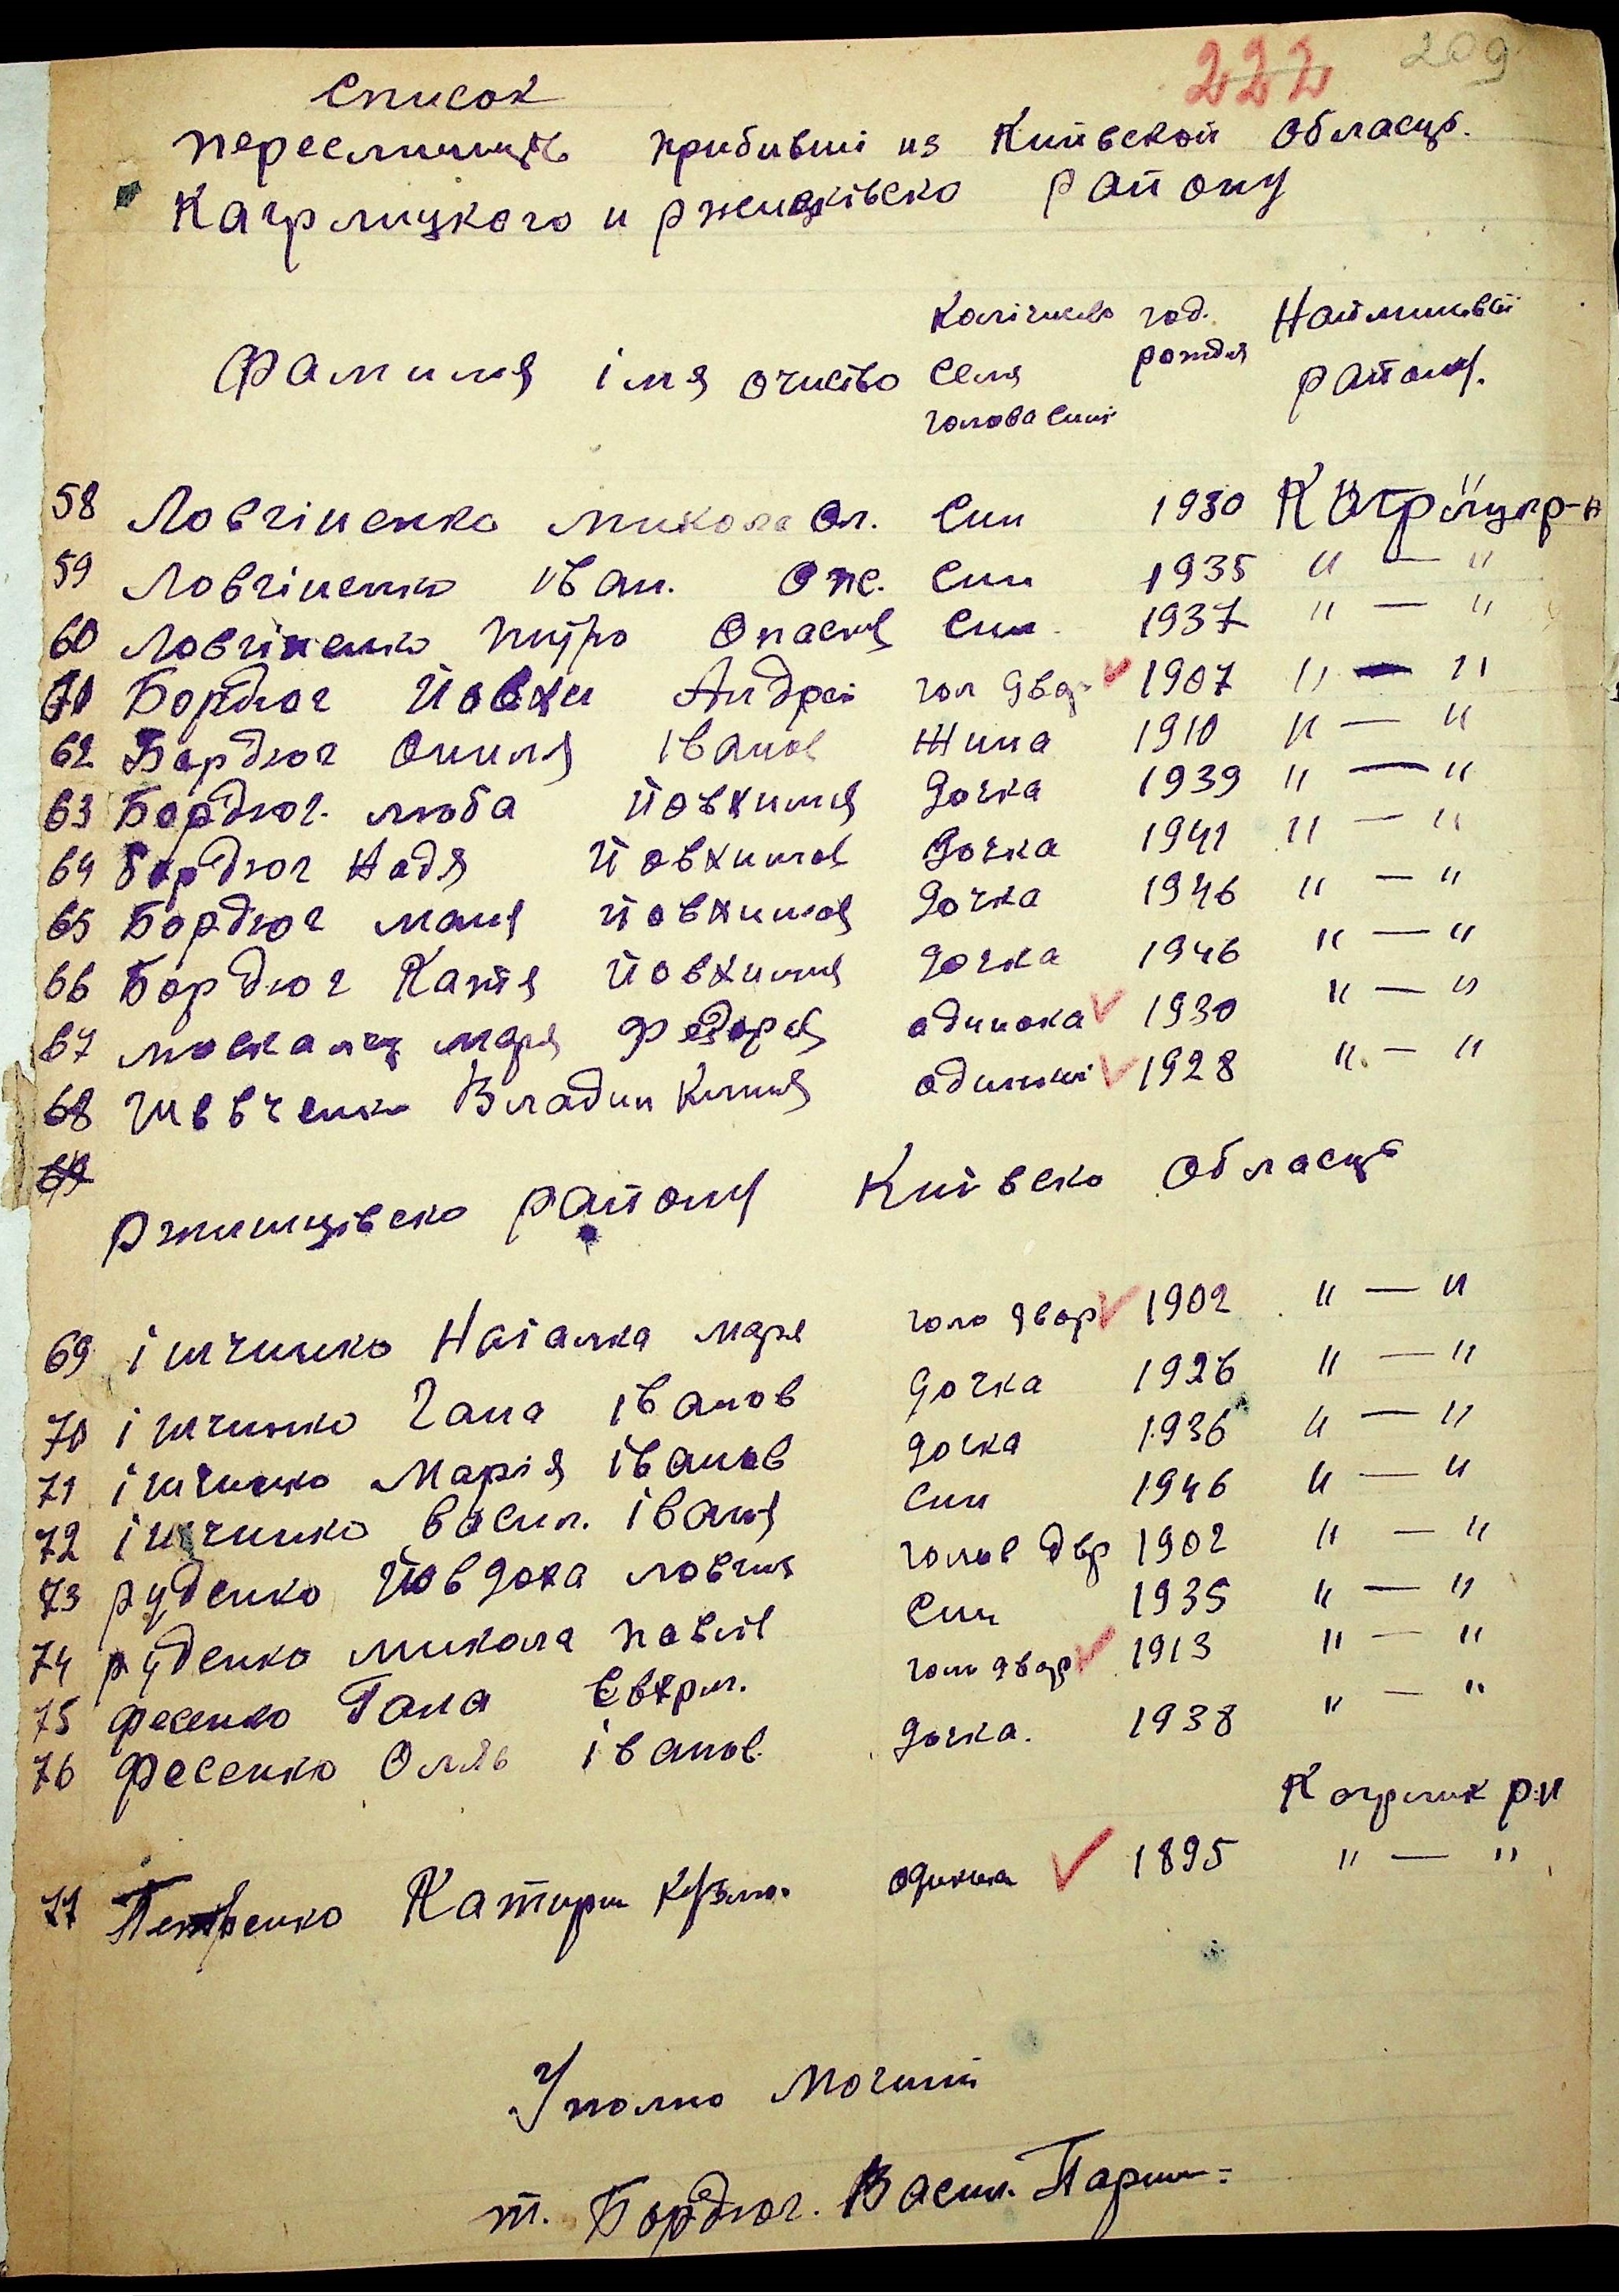 222 209
Список
пересилинцть прибивші из Киівской Обласць.
Кагрлицкого и ржищківско району
Фамиля імя очиство
Калічиство семя голова симі
год. рождия
Наймински району.
58 Ловгіненко микола Оп. син 1930 Кагрлицк р-н
59 Ловгіненко іван. Опс. син 1935 " — "
60 Ловгіненко питро Опасия син 1937 " — "
61 Бордюг Йовхи Андрі гол двр 1907 " — "
62 Бордюг Ониля Іванов жина 1910 " — "
63 Бордюг. люба йовхимия дочка 1939 " — "
64 Бордюг Надя Йовхимов дочка 1941 " — "
65 Бордюг маня йовхимов дочка 1946 " — "
66 Бордюг Катя йовхимия дочка 1946 " — "
67 москалец маря Федоров одинока 1930 " — "
68 Шевченко Владим одинокі 1928 " — "
69
ржищцівско району Киівско Обласць
69 ілгчинко Наталка маря голо двор 1902 " — "
70 ілгчинко Гана іванов дочка 1926 " — "
71 ілгчинко Марія іванов дочка 1936 " — "
72 ілгчинко васил. івания син 1946 " — "
73 руденко Йовдоха ловгия голов двр 1902 " — "
74 руденко микола павлов син 1935 " — "
75 фесенко Гана Євхрм. голо двор 1913 " — "
76 Фесенко Оляь іванов. дочка. 1938 " — "
Кагрлик р-н
77 Петренко Катири Кузмо. одинока 1895 " — "
Уполно мочини
т. Бордюг. Васил. Парш